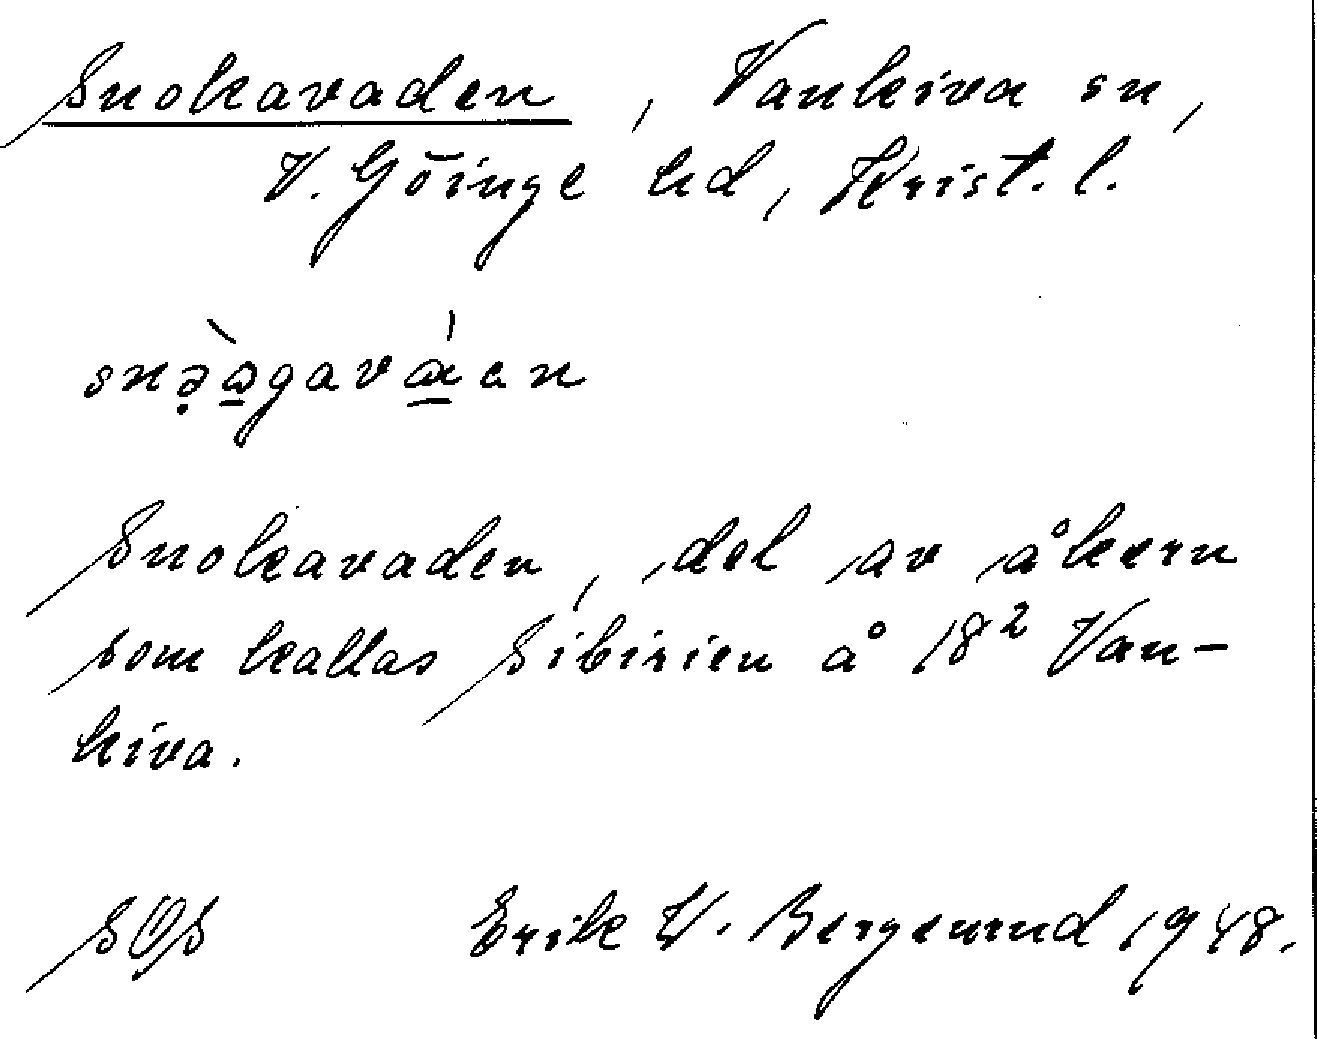 Snokavaden, Vankiva sn,
V. Göinge hd, Krist. l.
Snokavaden, del av åkern
som kallas Sibirien å 18² Van-
kiva.
SOS Erik W. Bergstrand 1948.